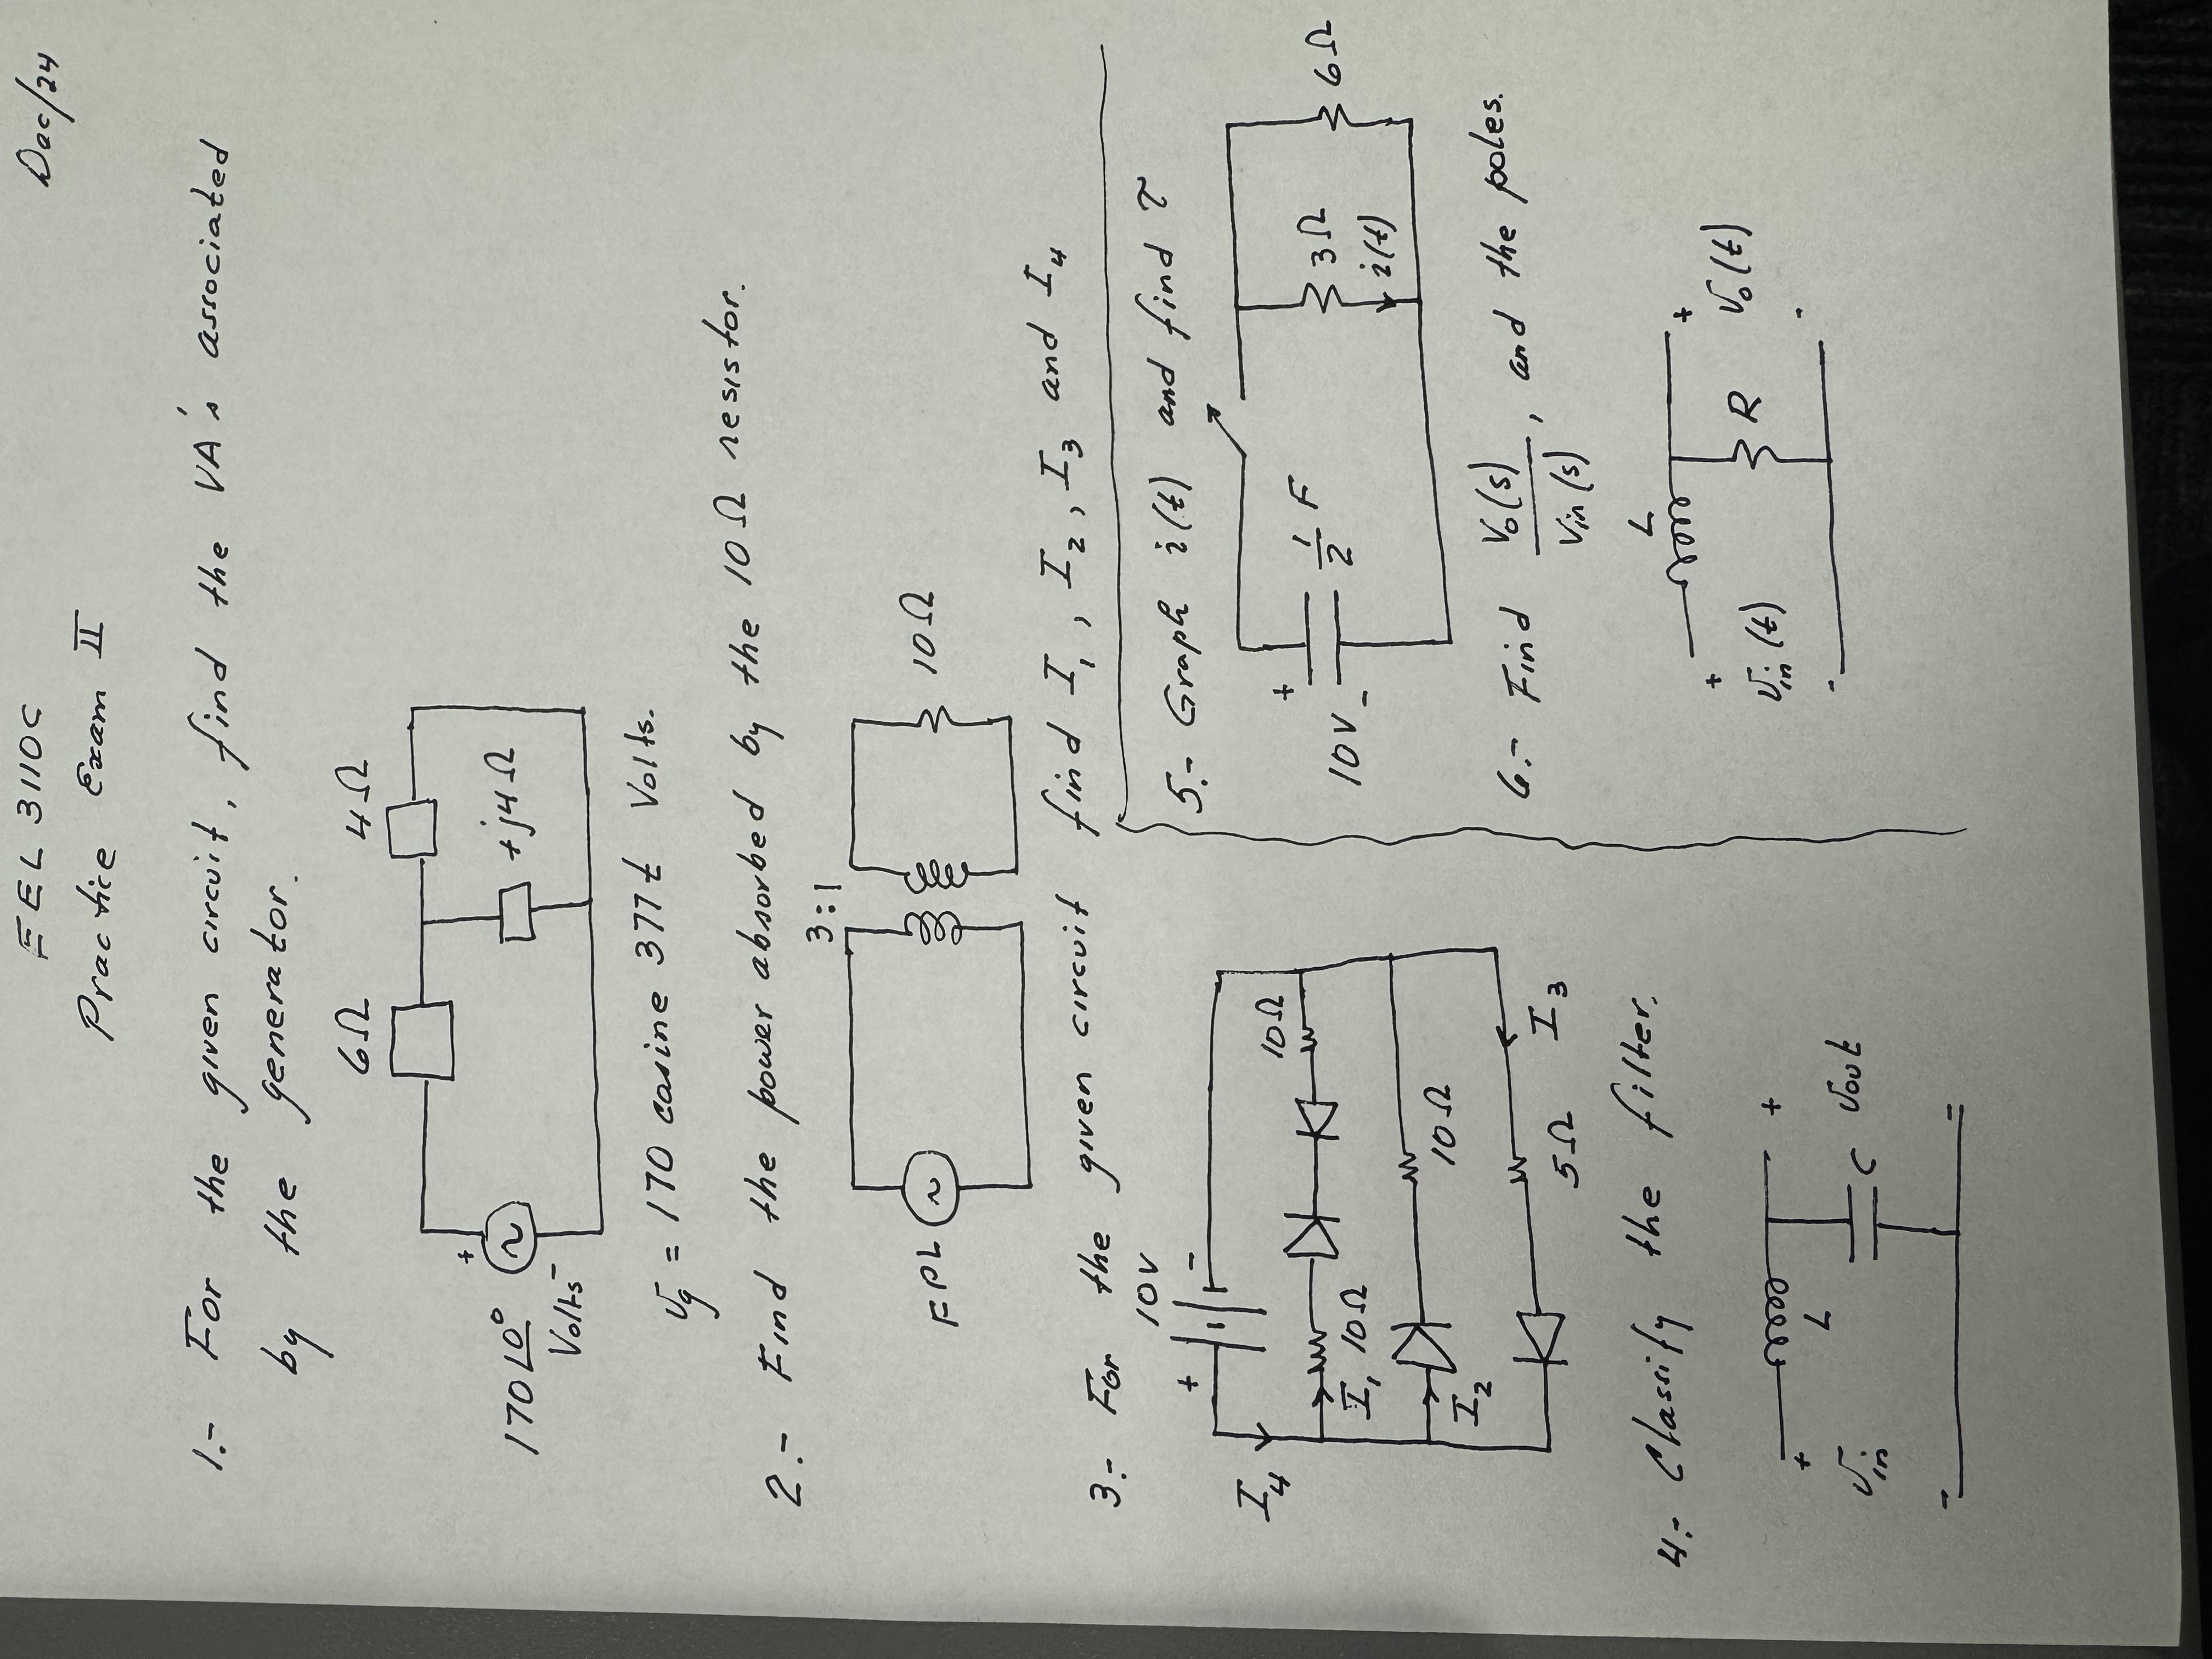 EEL 3110C
Dac/24
Practice Exam II
1.- For the given circuit, find the VA's associated
by the generator.
6Ω
4Ω
+j4Ω
+
170∠0°
Volts
-
Vg = 170 cosine 377t Volts.
2.- Find the power absorbed by the 10Ω resistor.
3:1
FPL
10Ω
3.- For the given circuit find I1, I2, I3 and I4
10V
+ -
I4
10Ω
I1 10Ω
I2
10Ω
5Ω
I3
4.- Classify the filter.
+
Vin
-
L
C
+
Vout
5.- Graph i(t) and find τ
+
10V
-
1/2 F
3Ω
i(t)
6Ω
6.- Find Vo(s)/Vin(s), and the poles.
+
Vin(t)
-
L
R
+
Vo(t)
-